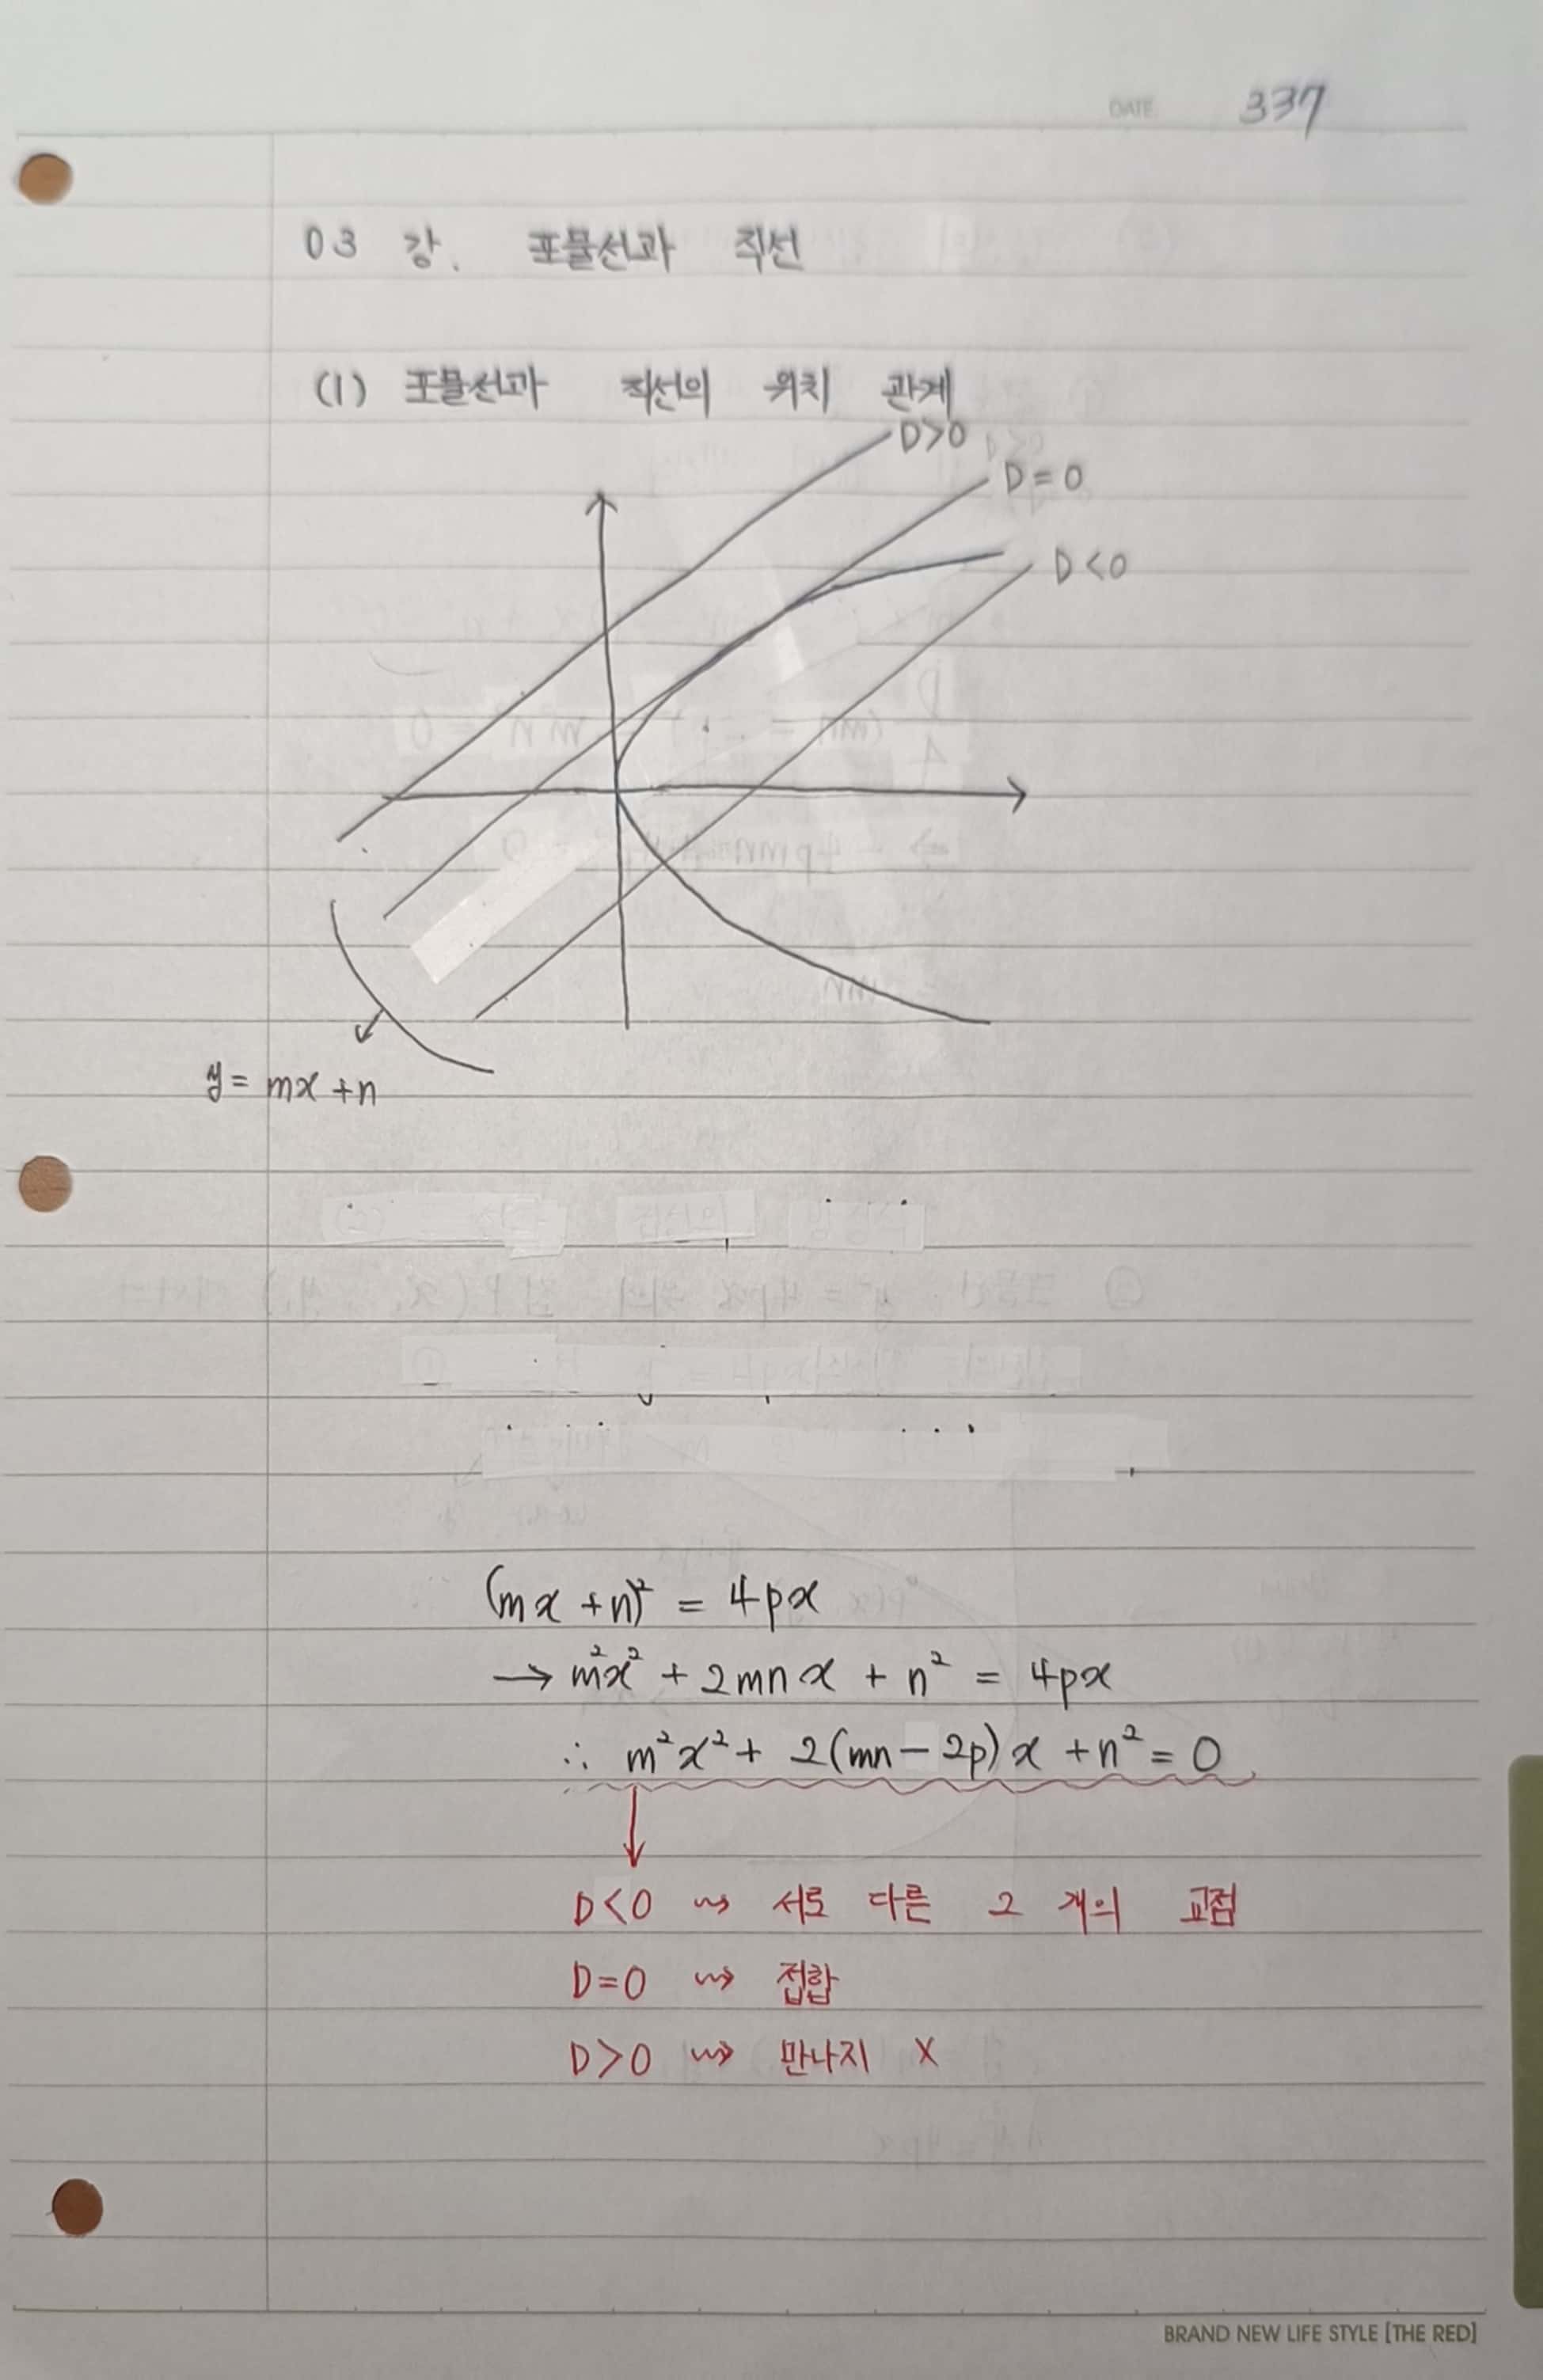 DATE 337
03 강. 포물선과 직선
(1) 포물선과 직선의 위치 관계
D>0
D=0
D<0
y = mx+n
(mx+n)² = 4px
→ m²x² + 2mnx + n² = 4px
∴ m²x² + 2(mn-2p)x + n² = 0
D<0 ⇝ 서로 다른 2 개의 교점
D=0 ⇝ 접합
D>0 ⇝ 만나지 X
BRAND NEW LIFE STYLE [THE RED]